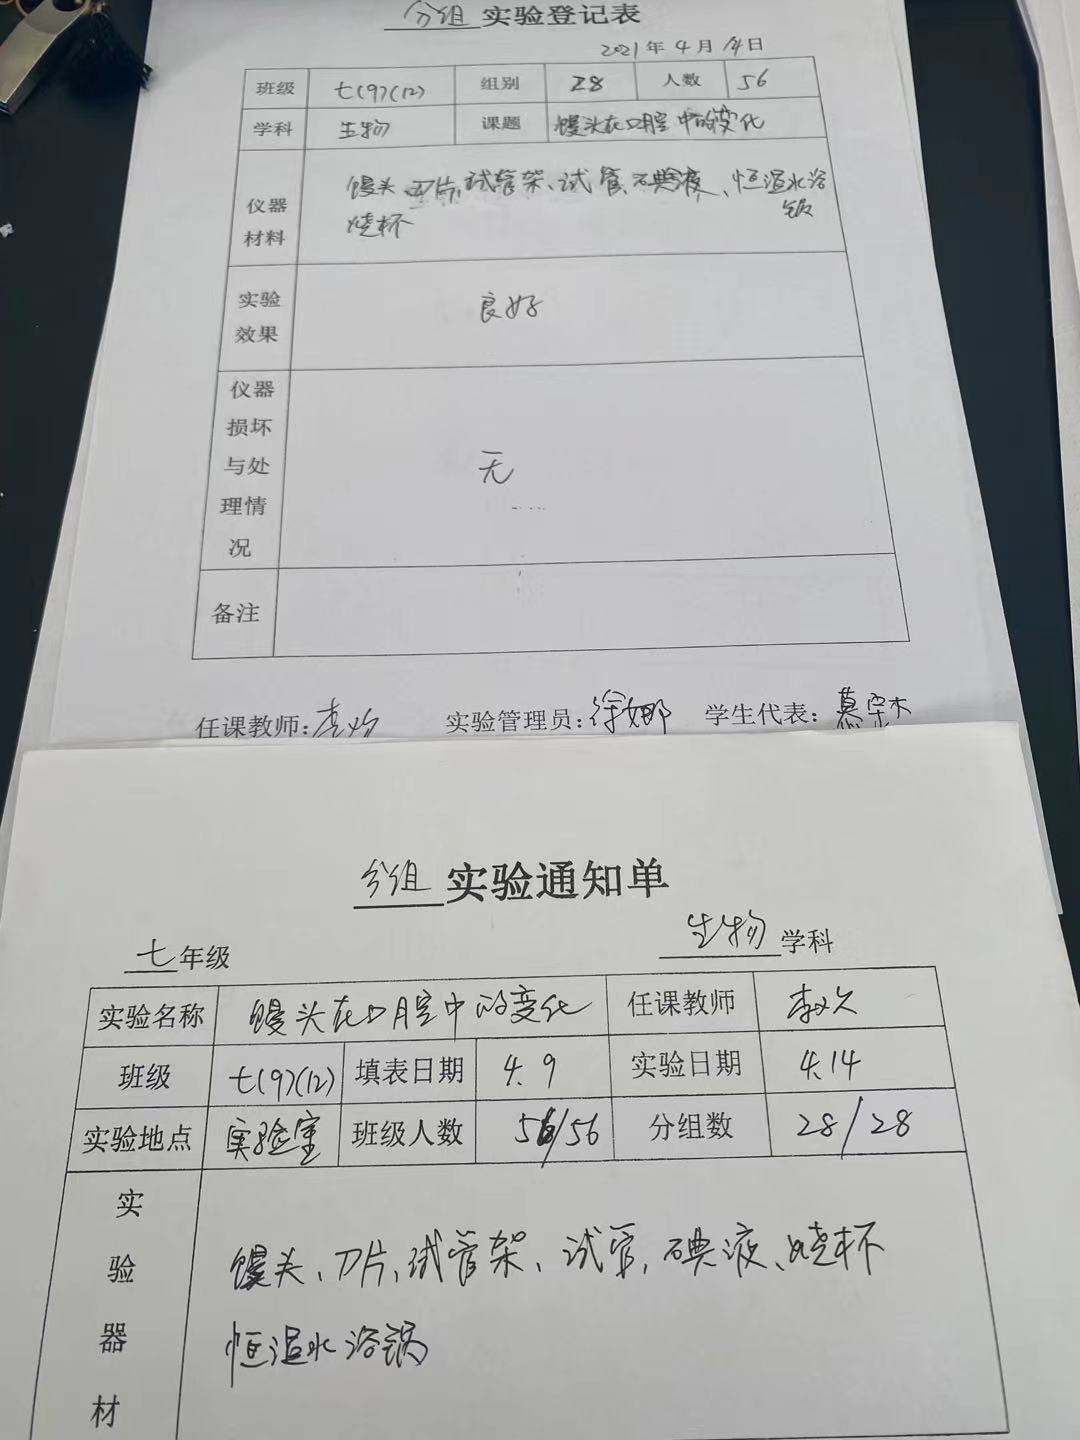 分组 实验登记表
2021年4月14日
班级 七(9)(12) 组别 28 人数 56
学科 生物 课题 馒头在口腔中的变化
仪器材料 馒头、刀片、试管架、试管、碘液、恒温水浴锅
烧杯
实验效果 良好
仪器损坏与处理情况 无
备注
任课教师: 实验管理员:徐娜 学生代表:
分组 实验通知单
七年级 生物 学科
实验名称 馒头在口腔中的变化 任课教师
班级 七(9)(12) 填表日期 4.9 实验日期 4.14
实验地点 实验室 班级人数 56/56 分组数 28/28
实验器材 馒头、刀片、试管架、试管、碘液、烧杯
恒温水浴锅